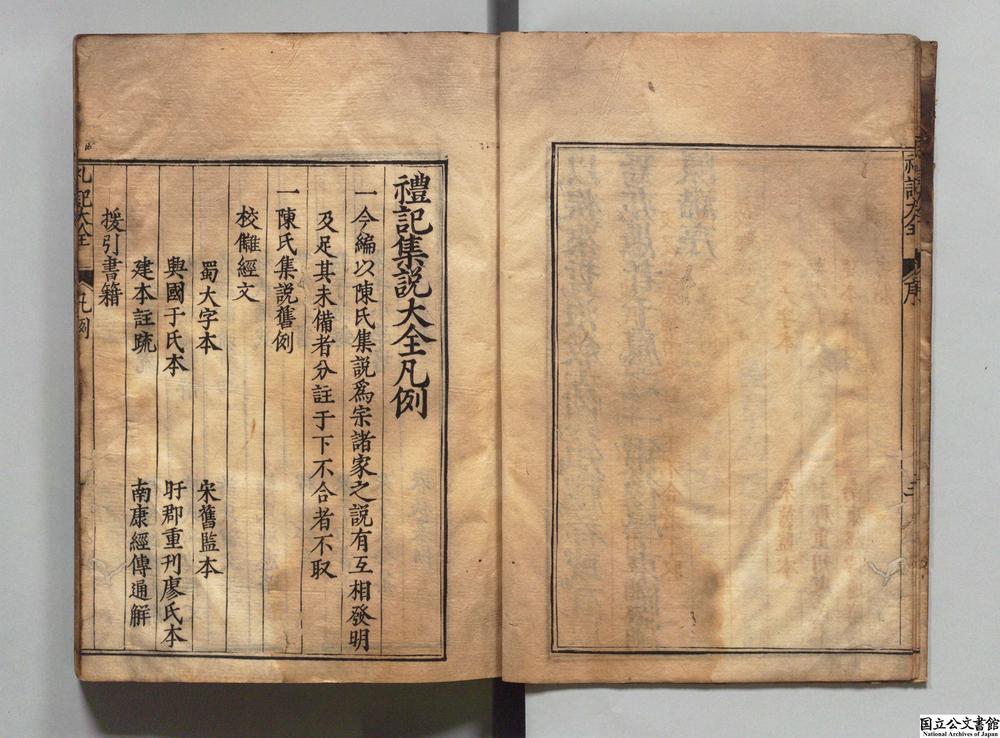 禮記集説大全凡例
一今編以陳氏集説爲宗諸家之説有互相發明
及足其未備者分註于下不合者不取
一陳氏集説舊例
校讎經文
蜀大字本 宋舊監本
興國于氏本 盱郡重刊廖氏本
建本註䟽 南康經傳通解
援引書籍
礼記大全 凡例
国立公文書館
National Archives of Japan